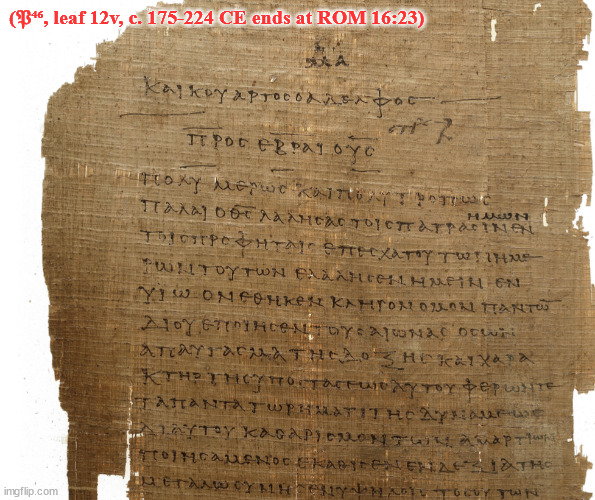 (𝔓⁴⁶, leaf 12v, c. 175-224 CE ends at ROM 16:23)
ΚΑΙ ΚΟΥΑΡΤΟϹ Ο ΑΔΕΛΦΟϹ
ΠΡΟϹ ΕΒΡΑΙΟΥϹ
ΠΟΛΥΜΕΡΩϹ ΚΑΙ ΠΟΛΥΤΡΟΠΩϹ
ΗΜΩΝ
ΠΑΛΑΙ Ο Θ̅Ϲ̅ ΛΑΛΗϹΑϹ ΤΟΙϹ ΠΑΤΡΑϹΙΝ ΕΝ
ΤΟΙϹ ΠΡΟΦΗΤΑΙϹ ΕΠ ΕϹΧΑΤΟΥ ΤΩΝ ΗΜΕ
ΡΩΝ ΤΟΥΤΩΝ ΕΛΑΛΗϹΕΝ ΗΜΕΙΝ ΕΝ
ΥΙΩ ΟΝ ΕΘΗΚΕΝ ΚΛΗΡΟΝΟΜΟΝ ΠΑΝΤΩ̅
ΔΙ ΟΥ ΕΠΟΙΗϹΕΝ ΤΟΥϹ ΑΙΩΝΑϹ ΟϹ ΩΝ
ΑΠΑΥΓΑϹΜΑ ΤΗϹ ΔΟΞΗϹ ΚΑΙ ΧΑΡΑ
ΚΤΗΡ ΤΗϹ ΥΠΟϹΤΑϹΕΩϹ ΑΥΤΟΥ ΦΕΡΩΝ ΤΕ
ΤΑ ΠΑΝΤΑ ΤΩ ΡΗΜΑΤΙ ΤΗϹ ΔΥΝΑΜΕΩϹ
ΔΙ ΑΥΤΟΥ ΚΑΘΑΡΙϹΜΟΝ ΤΩΝ ΑΜΑΡΤΙΩΝ
ΠΟΙΗϹΑΜΕΝΟϹ ΕΚΑΘΙϹΕΝ ΕΝ ΔΕΞΙΑ ΤΗϹ
ΜΕΓΑΛΩϹΥΝΗϹ ΕΝ ΥΨΗΛΟΙϹ ΤΟϹΟΥΤΩΝ
imgflip.com